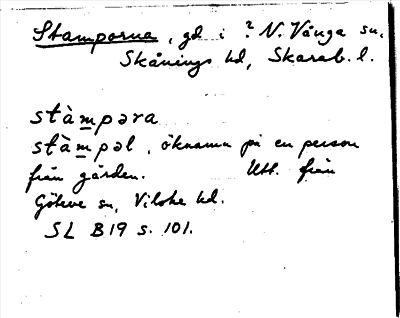 Stamporna, gd i ? N. Vånga sn,
Skånings hd, Skarab. l.
stàm̲pəra
stàm̲pəl, öknamn på en person
från gården. Utt. från
Göteve sn, Vilske hd.
SL B19 s. 101.